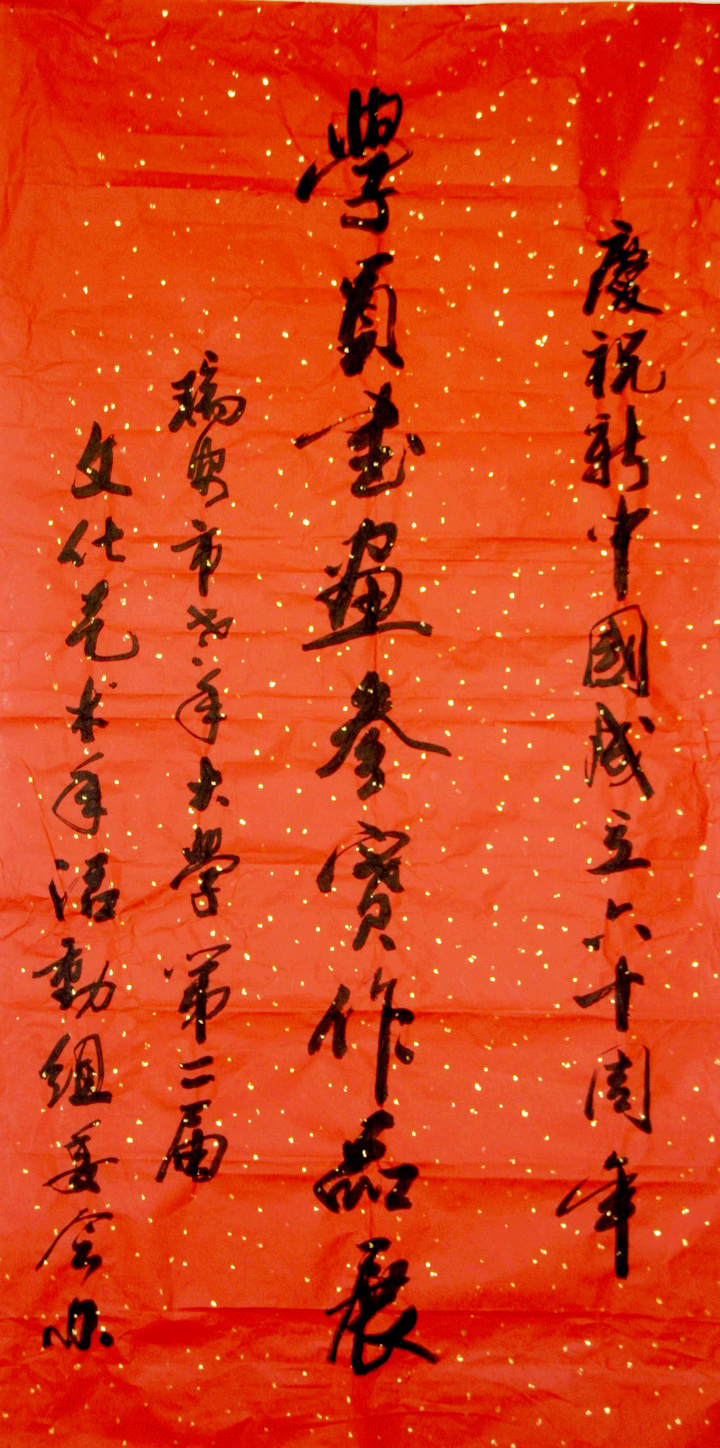 慶祝新中國成立六十周年
學員書畫參賽作品展
瑞安市老年大學第二届
文化艺术年活動組委会办